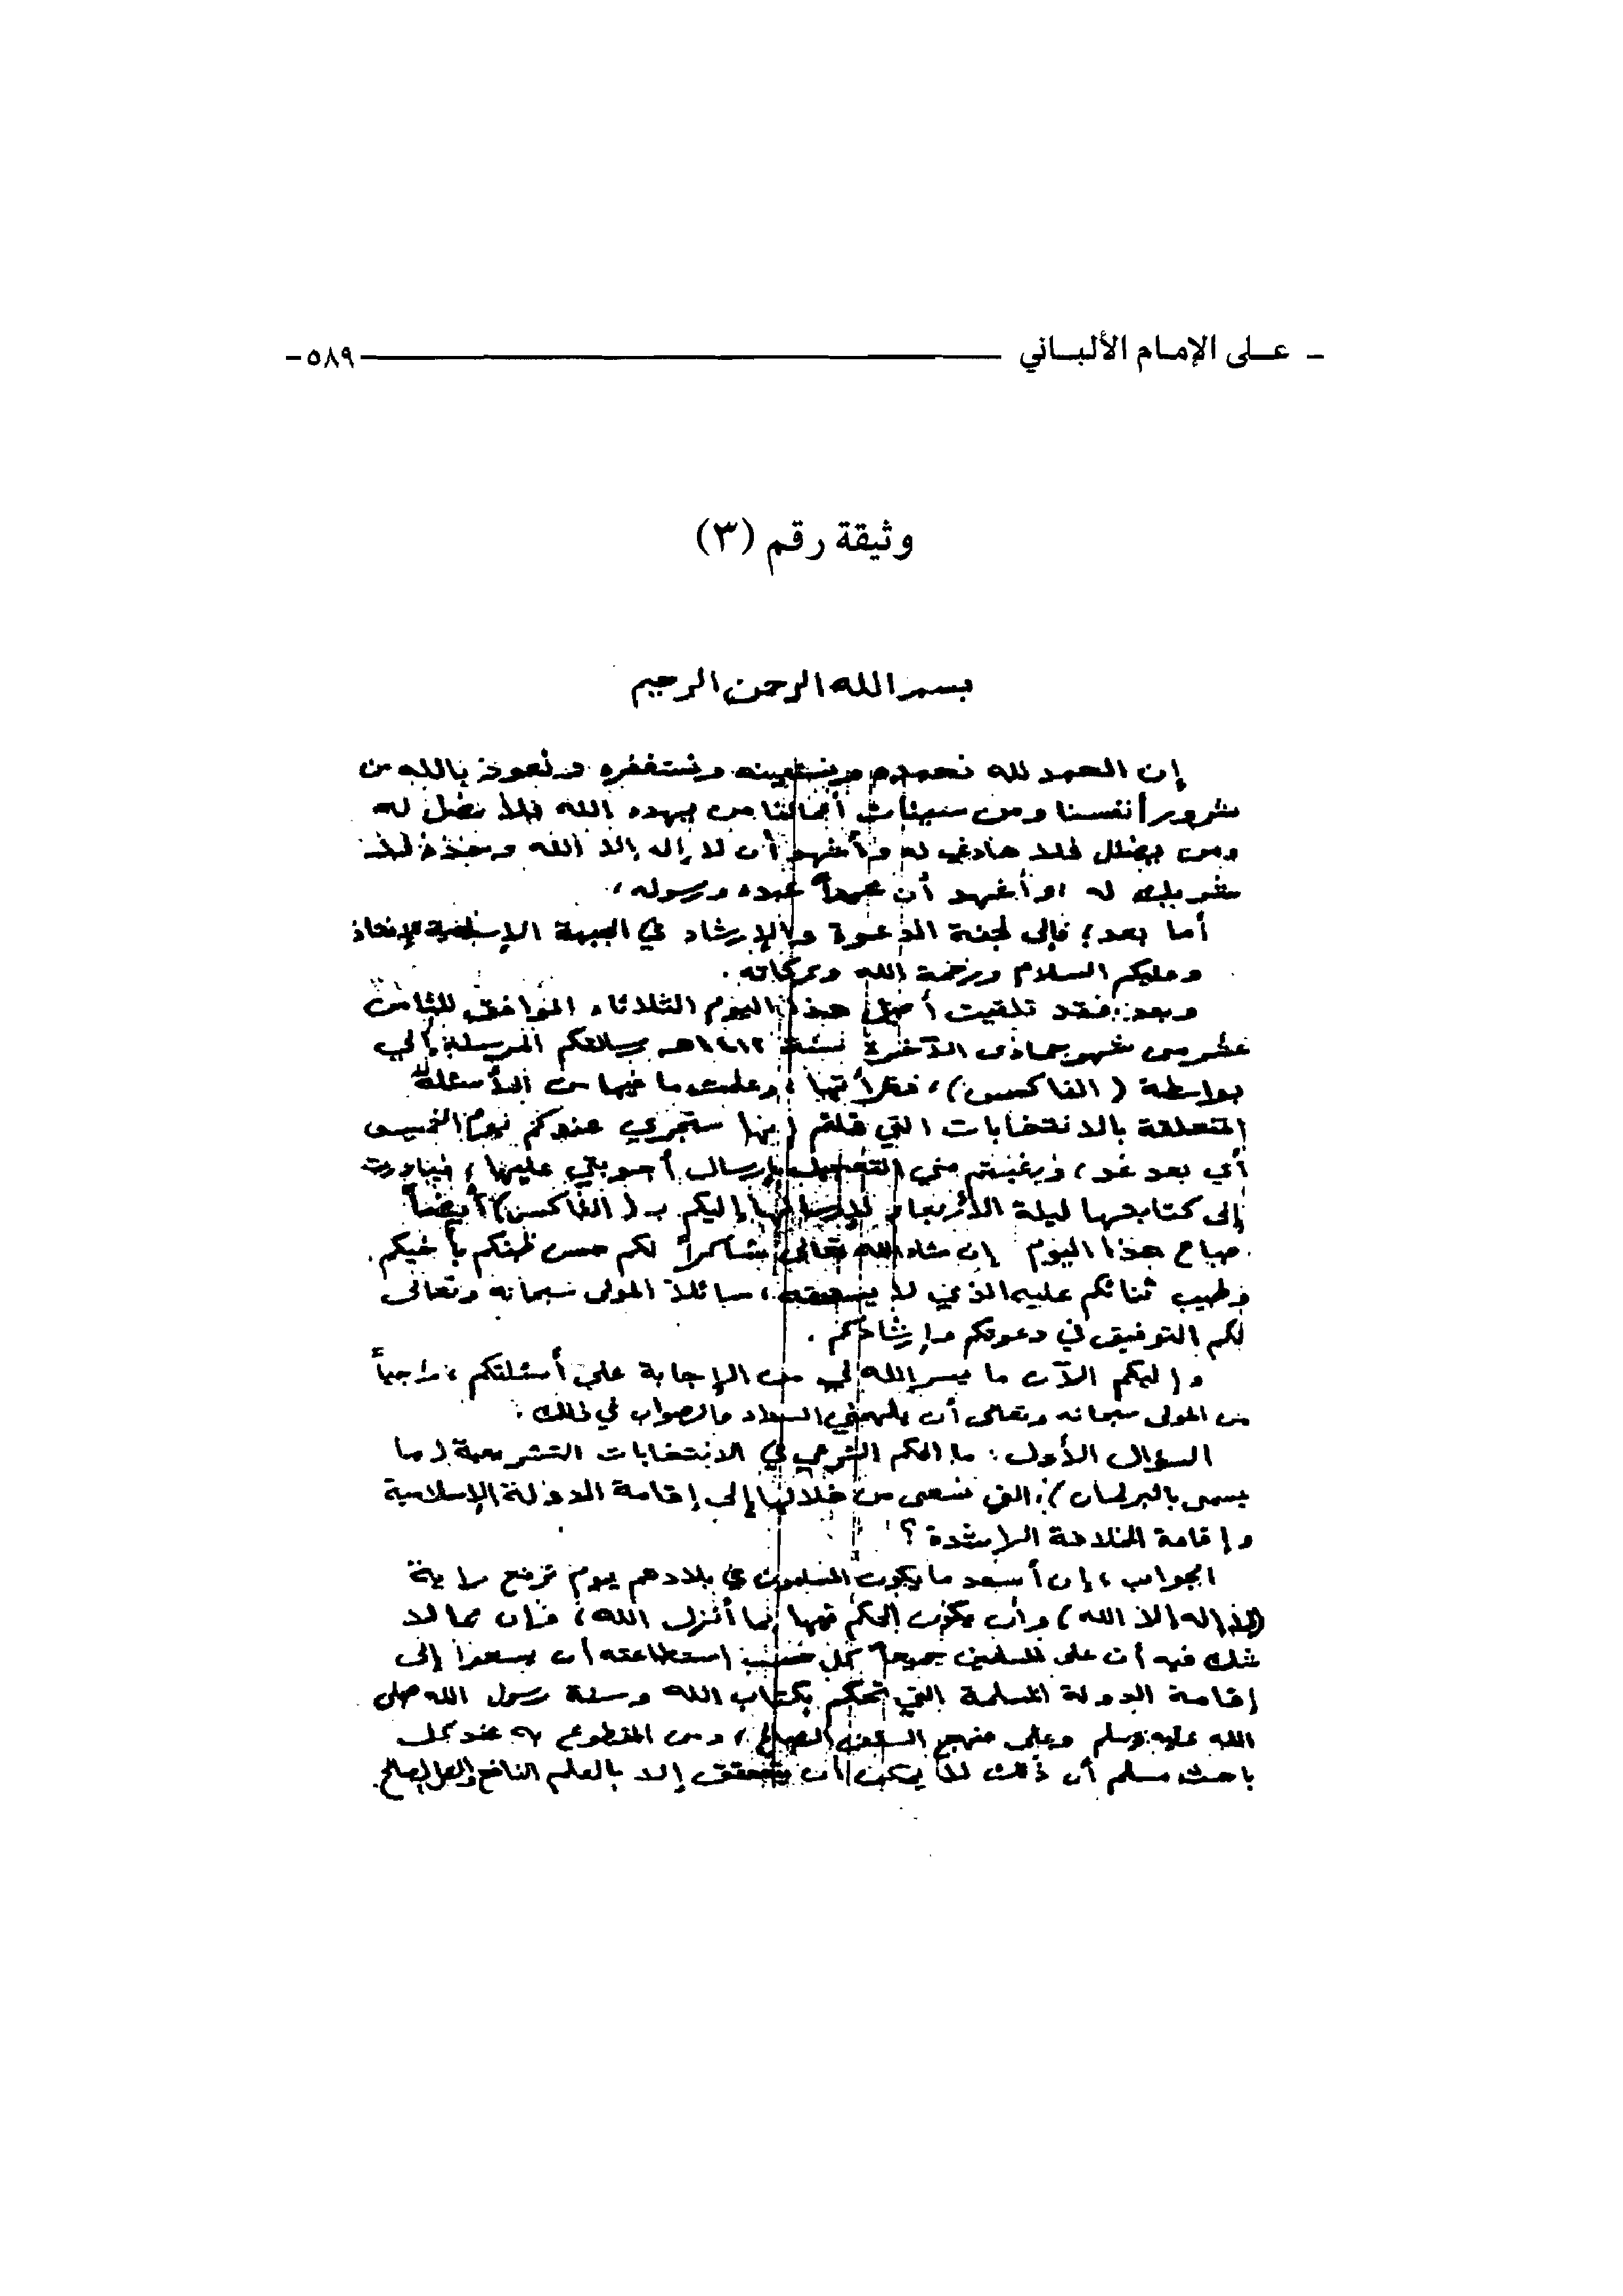 ـ عـلى الإمـام الألبـاني ـ ٥٨٩ ـ
وثيقة رقم (٣)
بسم الله الرحمن الرحيم
إن الحمد لله نحمده ونستعينه ونستغفره ونعوذ بالله من
شرور أنفسنا ومن سيئات أعمالنا من يهده الله فلا مضل له
ومن يضلل فلا هادي له وأشهد أن لا إله إلا الله وحده لا
شريك له وأشهد أن محمداً عبده ورسوله،
أما بعد؛ فإلى لجنة الدعوة والإرشاد في الجبهة الإسلامية للإنقاذ
وعليكم السلام ورحمة الله وبركاته.
وبعد: فقد تلقيت أصيل هذا اليوم الثلاثاء الموافق للثامن
عشر من شهر جمادى الآخرة سنة ١٤١٢هـ رسالتكم المرسلة إلي
بواسطة (الفاكس)، فقرأتها، وعلمت ما فيها من الأسئلة
المتعلقة بالانتخابات التي قلتم إنها ستجري عندكم يوم الخميس
أي بعد غد، ورغبتم مني التعجيل بإرسال أجوبتي عليها، فبادرت
إلى كتابتها ليلة الأربعاء لإرسالها إليكم بـ (الفاكس) أيضاً
صباح هذا اليوم إن شاء الله تعالى شاكراً لكم حسن ظنكم بأخيكم
وطيب ثنائكم عليه الذي لا يستحقه، سائلاً المولى سبحانه وتعالى
لكم التوفيق في دعوتكم وإرشادكم.
وإليكم الآن ما يسر الله لي من الإجابة على أسئلتكم، راجياً
من المولى سبحانه وتعالى أن يلهمني السداد والصواب في ذلك.
السؤال الأول: ما الحكم الشرعي في الانتخابات التشريعية (ما
يسمى بالبرلمان)، التي نسعى من خلالها إلى إقامة الدولة الإسلامية
وإقامة الخلافة الراشدة؟
الجواب، إن أسعد ما يكون المسلمون في بلادهم يوم ترفع راية
(لا إله إلا الله) وأن يكون الحكم فيها بما أنزل الله، فإن مما لا
شك فيه أن على المسلمين جميعاً كل حسب استطاعته أن يسعوا إلى
إقامة الدولة المسلمة التي تحكم بكتاب الله وسنة رسول الله صلى
الله عليه وسلم وعلى منهج السلف الصالح، ومن المقطوع به عند كل
باحث مسلم أن ذلك لا يمكن أن يتحقق إلا بالعلم النافع والعمل الصالح.